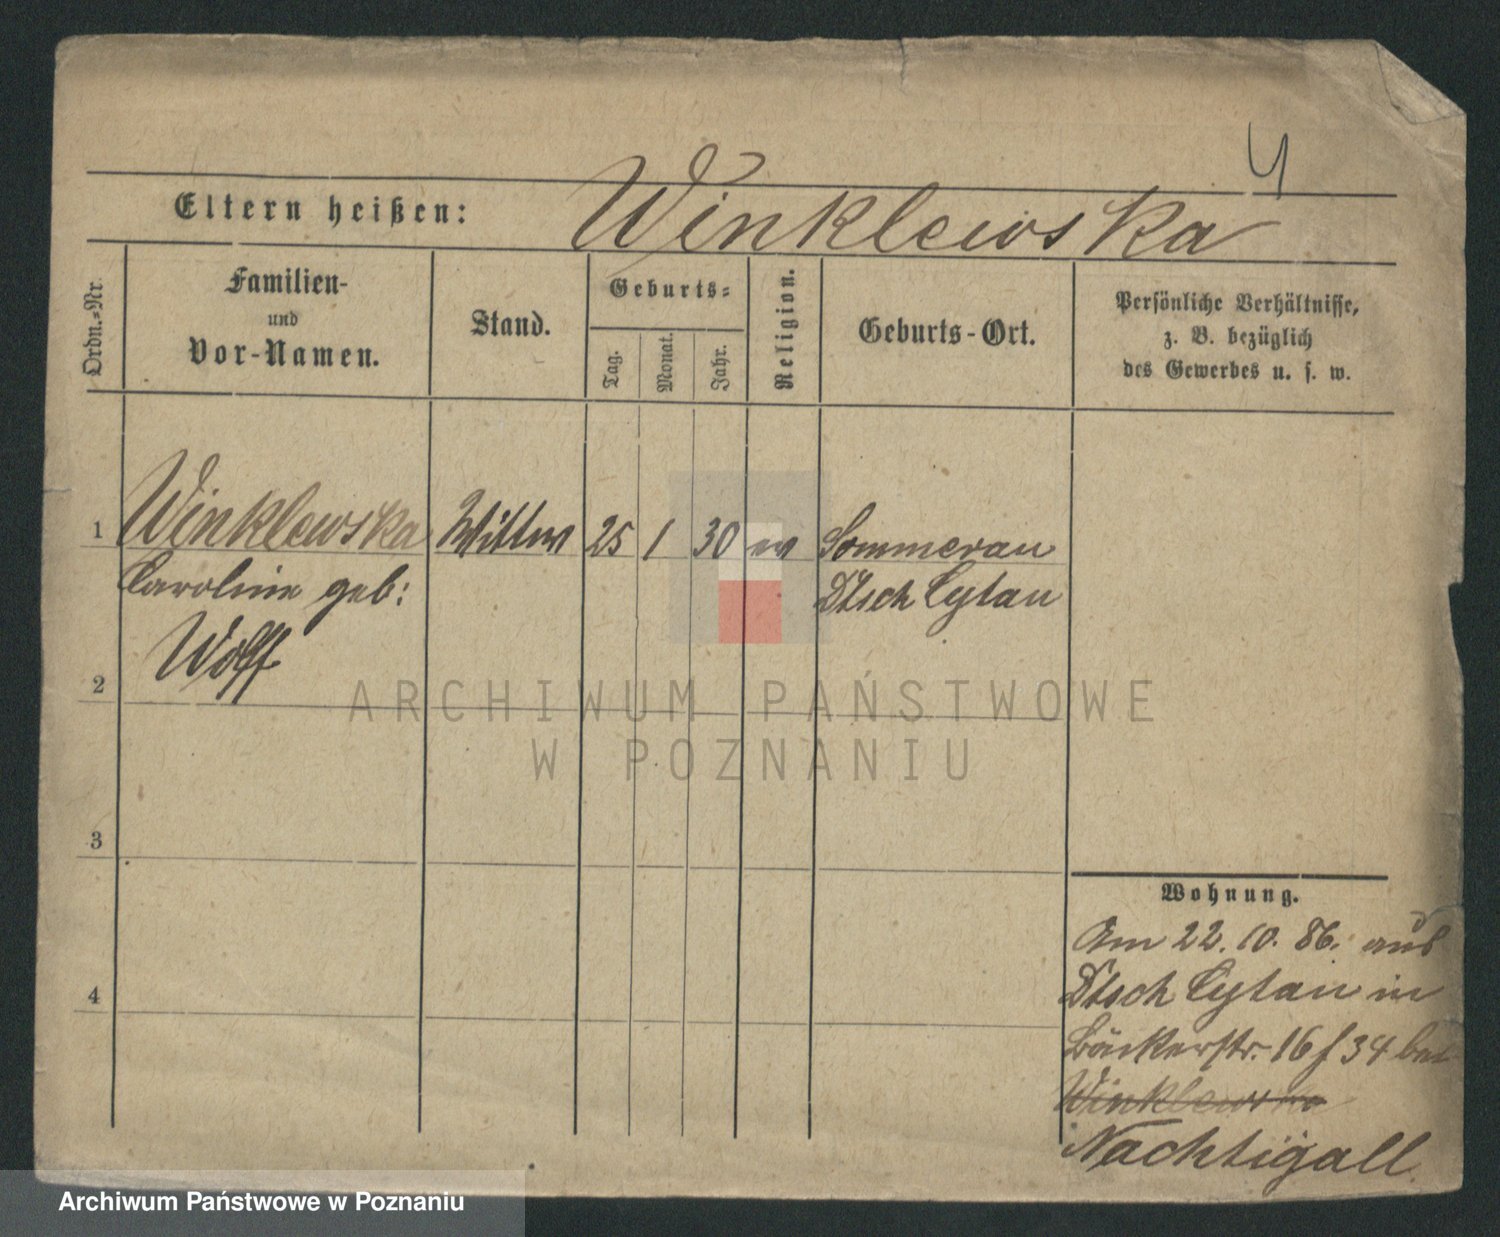 4
Eltern heißen: Winklewska
Ordn.-Nr.
Familien-
und
Vor-Namen.
Stand.
Geburts-
Tag.
Monat.
Jahr.
Religion.
Geburts-Ort.
Persönliche Verhältnisse,
z. B. bezüglich
des Gewerbes u. s. w.
1 Winklewska Wittwe 25 1 30 ev Sommerau
Caroline geb: Dtsch Cylau
Wolff
2
ARCHIWUM PAŃSTWOWE
W POZNANIU
3
4
Wohnung.
Am 22. 10. 86. aus
Dtsch Cylau in
Bäckerstr. 16 f 34 bei
Winklewska
Nachtigall
Archiwum Państwowe w Poznaniu